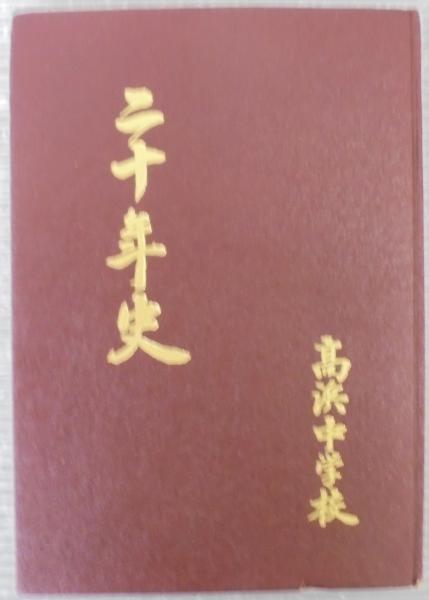 二十年史
高浜中学校